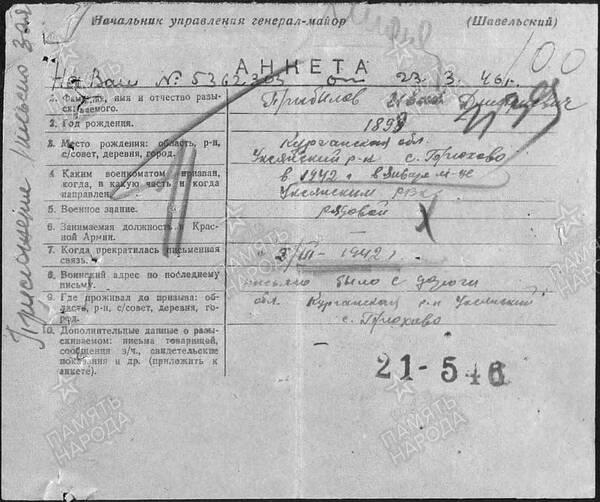 Начальник управления генерал-майор (Шавельский)
АНКЕТА
На Ваш № 5362303 от 23.3.46 г.
1. Фамилия, имя и отчество разыскиваемого. Прибылов Дмитриевич
2. Год рождения. 1898
3. Место рождения: область, р-н, с/совет, деревня, город. Курганская обл. Уксянский р-н с. Брюхово
4. Каким военкоматом призван, когда, в какую часть и когда направлен. в 1942 г. в январе м-це Уксянским РВК
5. Военное звание. рядовой
6. Занимаемая должность в Красной Армии.
7. Когда прекратилась письменная связь. " 3/III - 1942 г.
8. Воинский адрес по последнему письму. письмо было с дороги
9. Где проживал до призыва: область, р-н, с/совет, деревня, город. обл. Курганская р-н Уксянский с. Брюхово
10. Дополнительные данные о разыскиваемом: письма товарищей, сообщения з/ч., свидетельские показания и др. (приложить к анкете).
21-546
100
письмо
ПАМЯТЬ НАРОДА